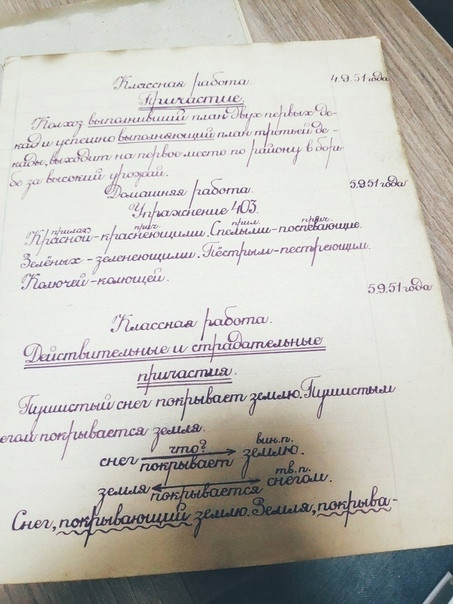 Классная работа. 4.9.51 года
Причастие.
Колхоз выполнивший план двух первых де-
кад и успешно выполняющий план третьей де-
кады, выходит на первое место по району в борь-
бе за высокий урожай.
Домашняя работа. 5.9.51 года
Упражнение 403.
прилаг. прич. прил. прич.
Красной-краснеющими. Спелыми-поспевающие.
Зелёных-зеленеющими. Пёстрым-пестреющим.
Колючей-колющей.
5.9.51 года
Классная работа.
Действительные и страдательные
причастия.
Пушистый снег покрывает землю. Пушистым
негом покрывается земля.
что? вин.п.
снег покрывает землю.
тв.п.
земля покрывается снегом.
Снег, покрывающий землю. Земля, покрыва-